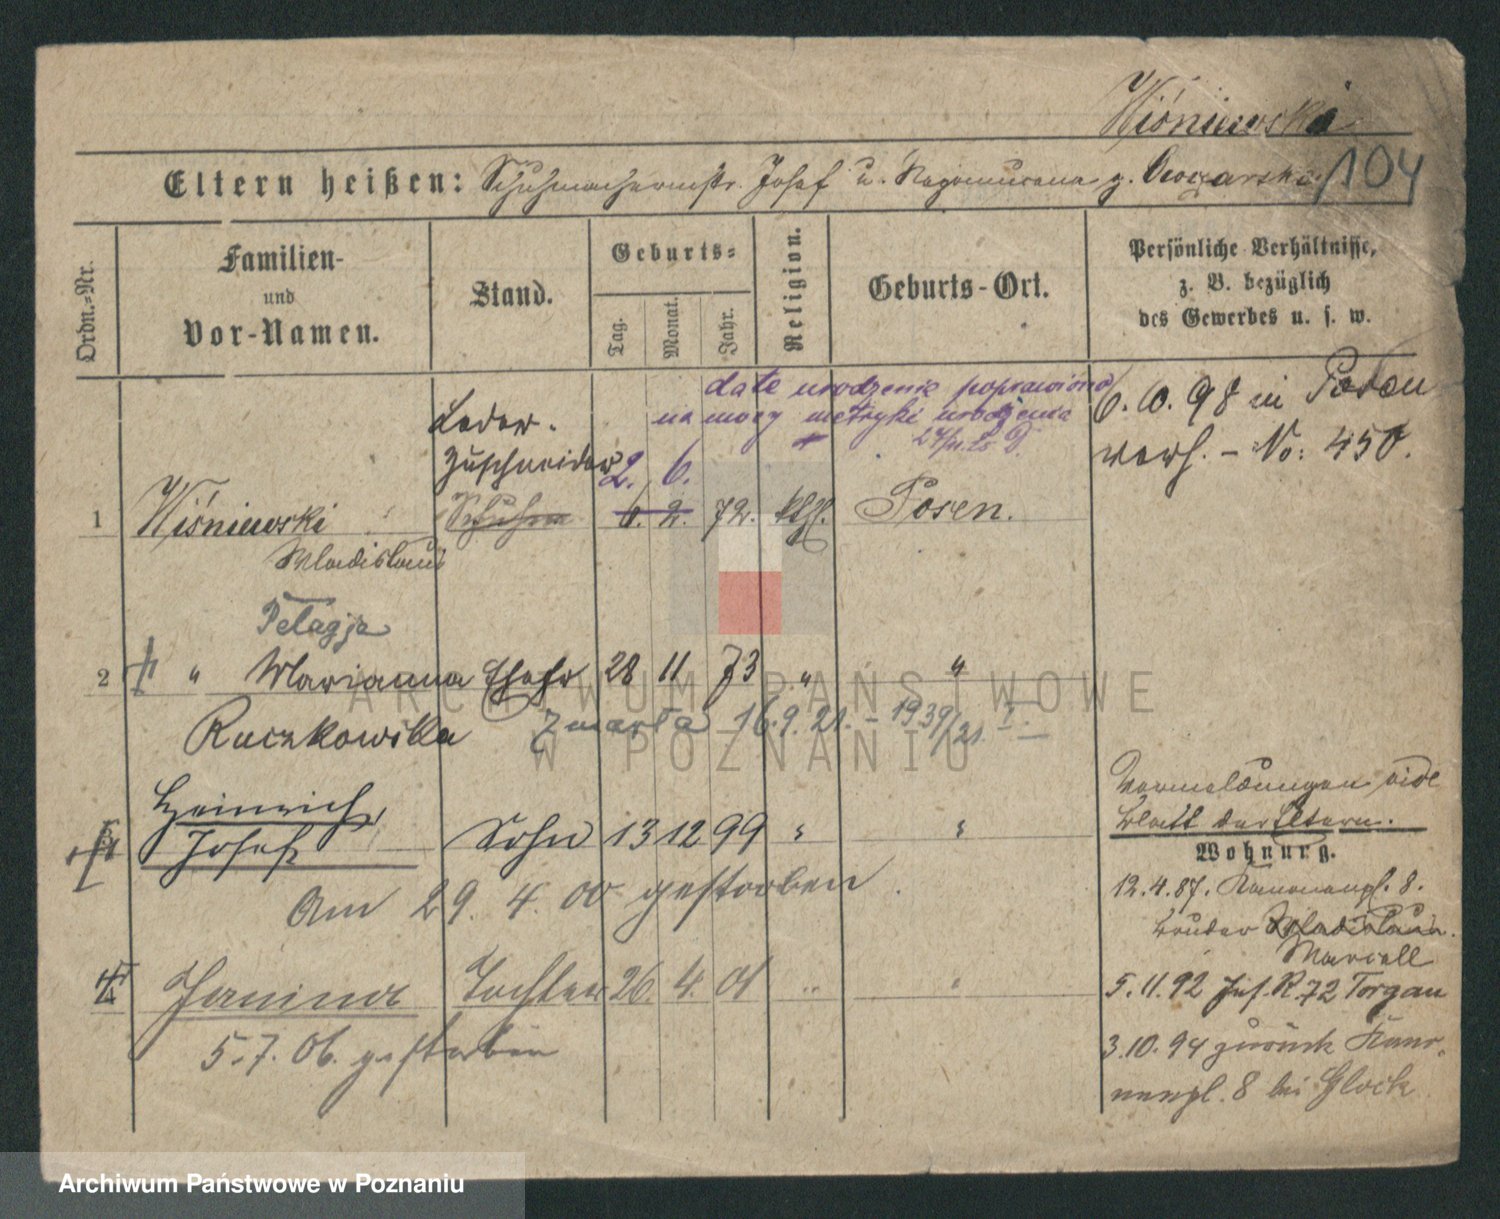 Wiśniewski
104
Eltern heißen: Schuhmachermstr. Josef u. Nepomucena g.
Ordn.-Nr.
Familien-
und
Vor-Namen.
Stand.
Geburts-
Tag.
Monat.
Jahr.
Religion.
Geburts-Ort.
Persönliche Verhältnisse,
z. B. bezüglich
des Gewerbes u. s. w.
date urodzenia poprawiono
na mocy metryki urodzenia
6. 10. 98 in Posen
verh. - No: 450.
Leder-
zuschneider
2. 6.
1 Wiśniewski Schuhm 6. 2. 72. kth. Posen.
Wladislaus
Pelagja
2 " Marianna Ehefr 28 11 73 " "
Ruczkowska
Zmarła 16.9.21. - 1939/21
Heinrich,
Josef Sohn 13 12 99 " "
Am 29. 4. 00 gestorben.
Vermeldungen vide
Blatt der Eltern.
Wohnung.
12.4.87. Kanonenpl. 8.
Bruder Wladislaus.
Marcell
Janina Tochter 26. 4. 01 " "
5.7.06. gestorben
5.11.92 Inf. R. 72 Torgau
3.10.94 zurück Kano-
nenpl. 8 bei Glock
ARCHIWUM PAŃSTWOWE
W POZNANIU
Archiwum Państwowe w Poznaniu